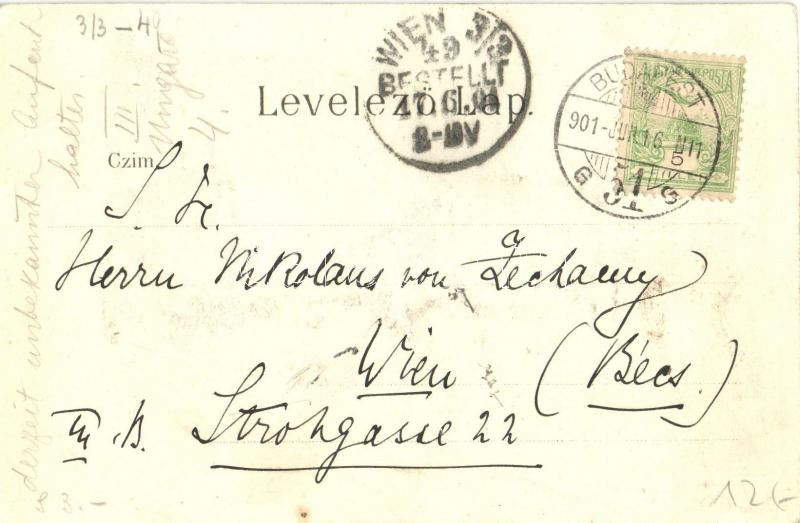 3/3 - 49
WIEN 3/3
49
BESTELLT
17.6.01
8-10V
POSTA
BUDAPEST
901-JUN.16
5
51
Levelező-Lap.
III.
Ungarg.
4.
Czim
derzeit unbekannten Aufent
haltes.
S. Hr.
Herrn Nikolaus von Zechany
Wien (Bécs.)
III. B. Strohgasse 22
12€